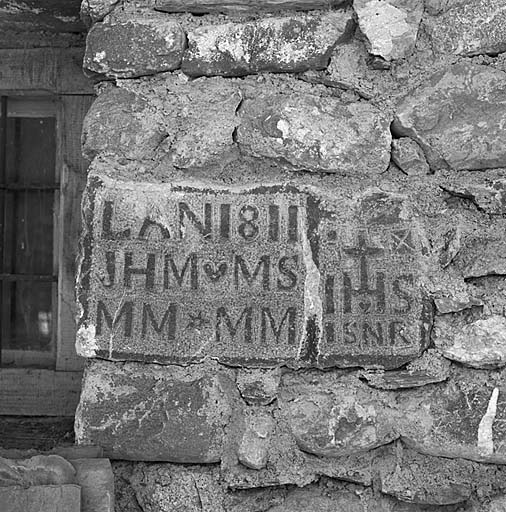 LAN 1811
JHM♥MS
MM*MM
IHS
ISNR